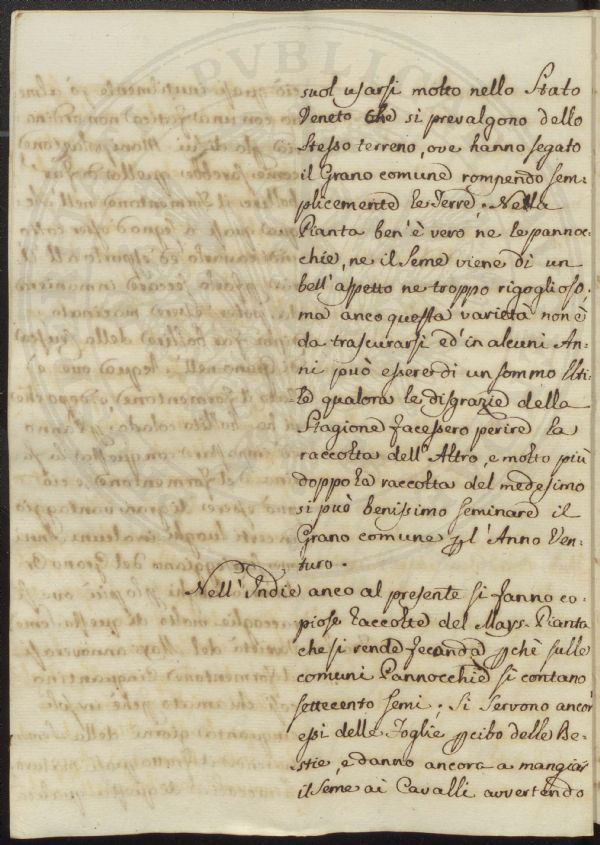 suol usarsi molto nello Stato
Veneto che si prevalgono dello
stesso terreno, ove hanno segato
il Grano comune rompendo sem:
plicemente le Terre. Nella
Pianta ben'è vero ne le pannoc:
chie, ne il Seme viene di un
bell'aspetto ne troppo rigoglioso.
ma anco questa varietà non è
da trascurarsi ed' in alcuni An:
ni può essere di un sommo Uti:
le qualora le disgrazie della
Stagione facessero perire la
raccolta dell'Altro, e molto più
doppo la raccolta del medesimo
si può benissimo seminare il
Grano comune p l'Anno Ven:
turo.
Nell'Indie anco al presente si fanno co:
piose raccolte del Mays. Pianta
che si rende feconda pchè sulle
comuni Pannocchie si contano
settecento semi. Si Servono ancor
essi delle Foglie p cibo delle Be:
stie, e danno ancora a mangiar
il Seme ai Cavalli avvertendo